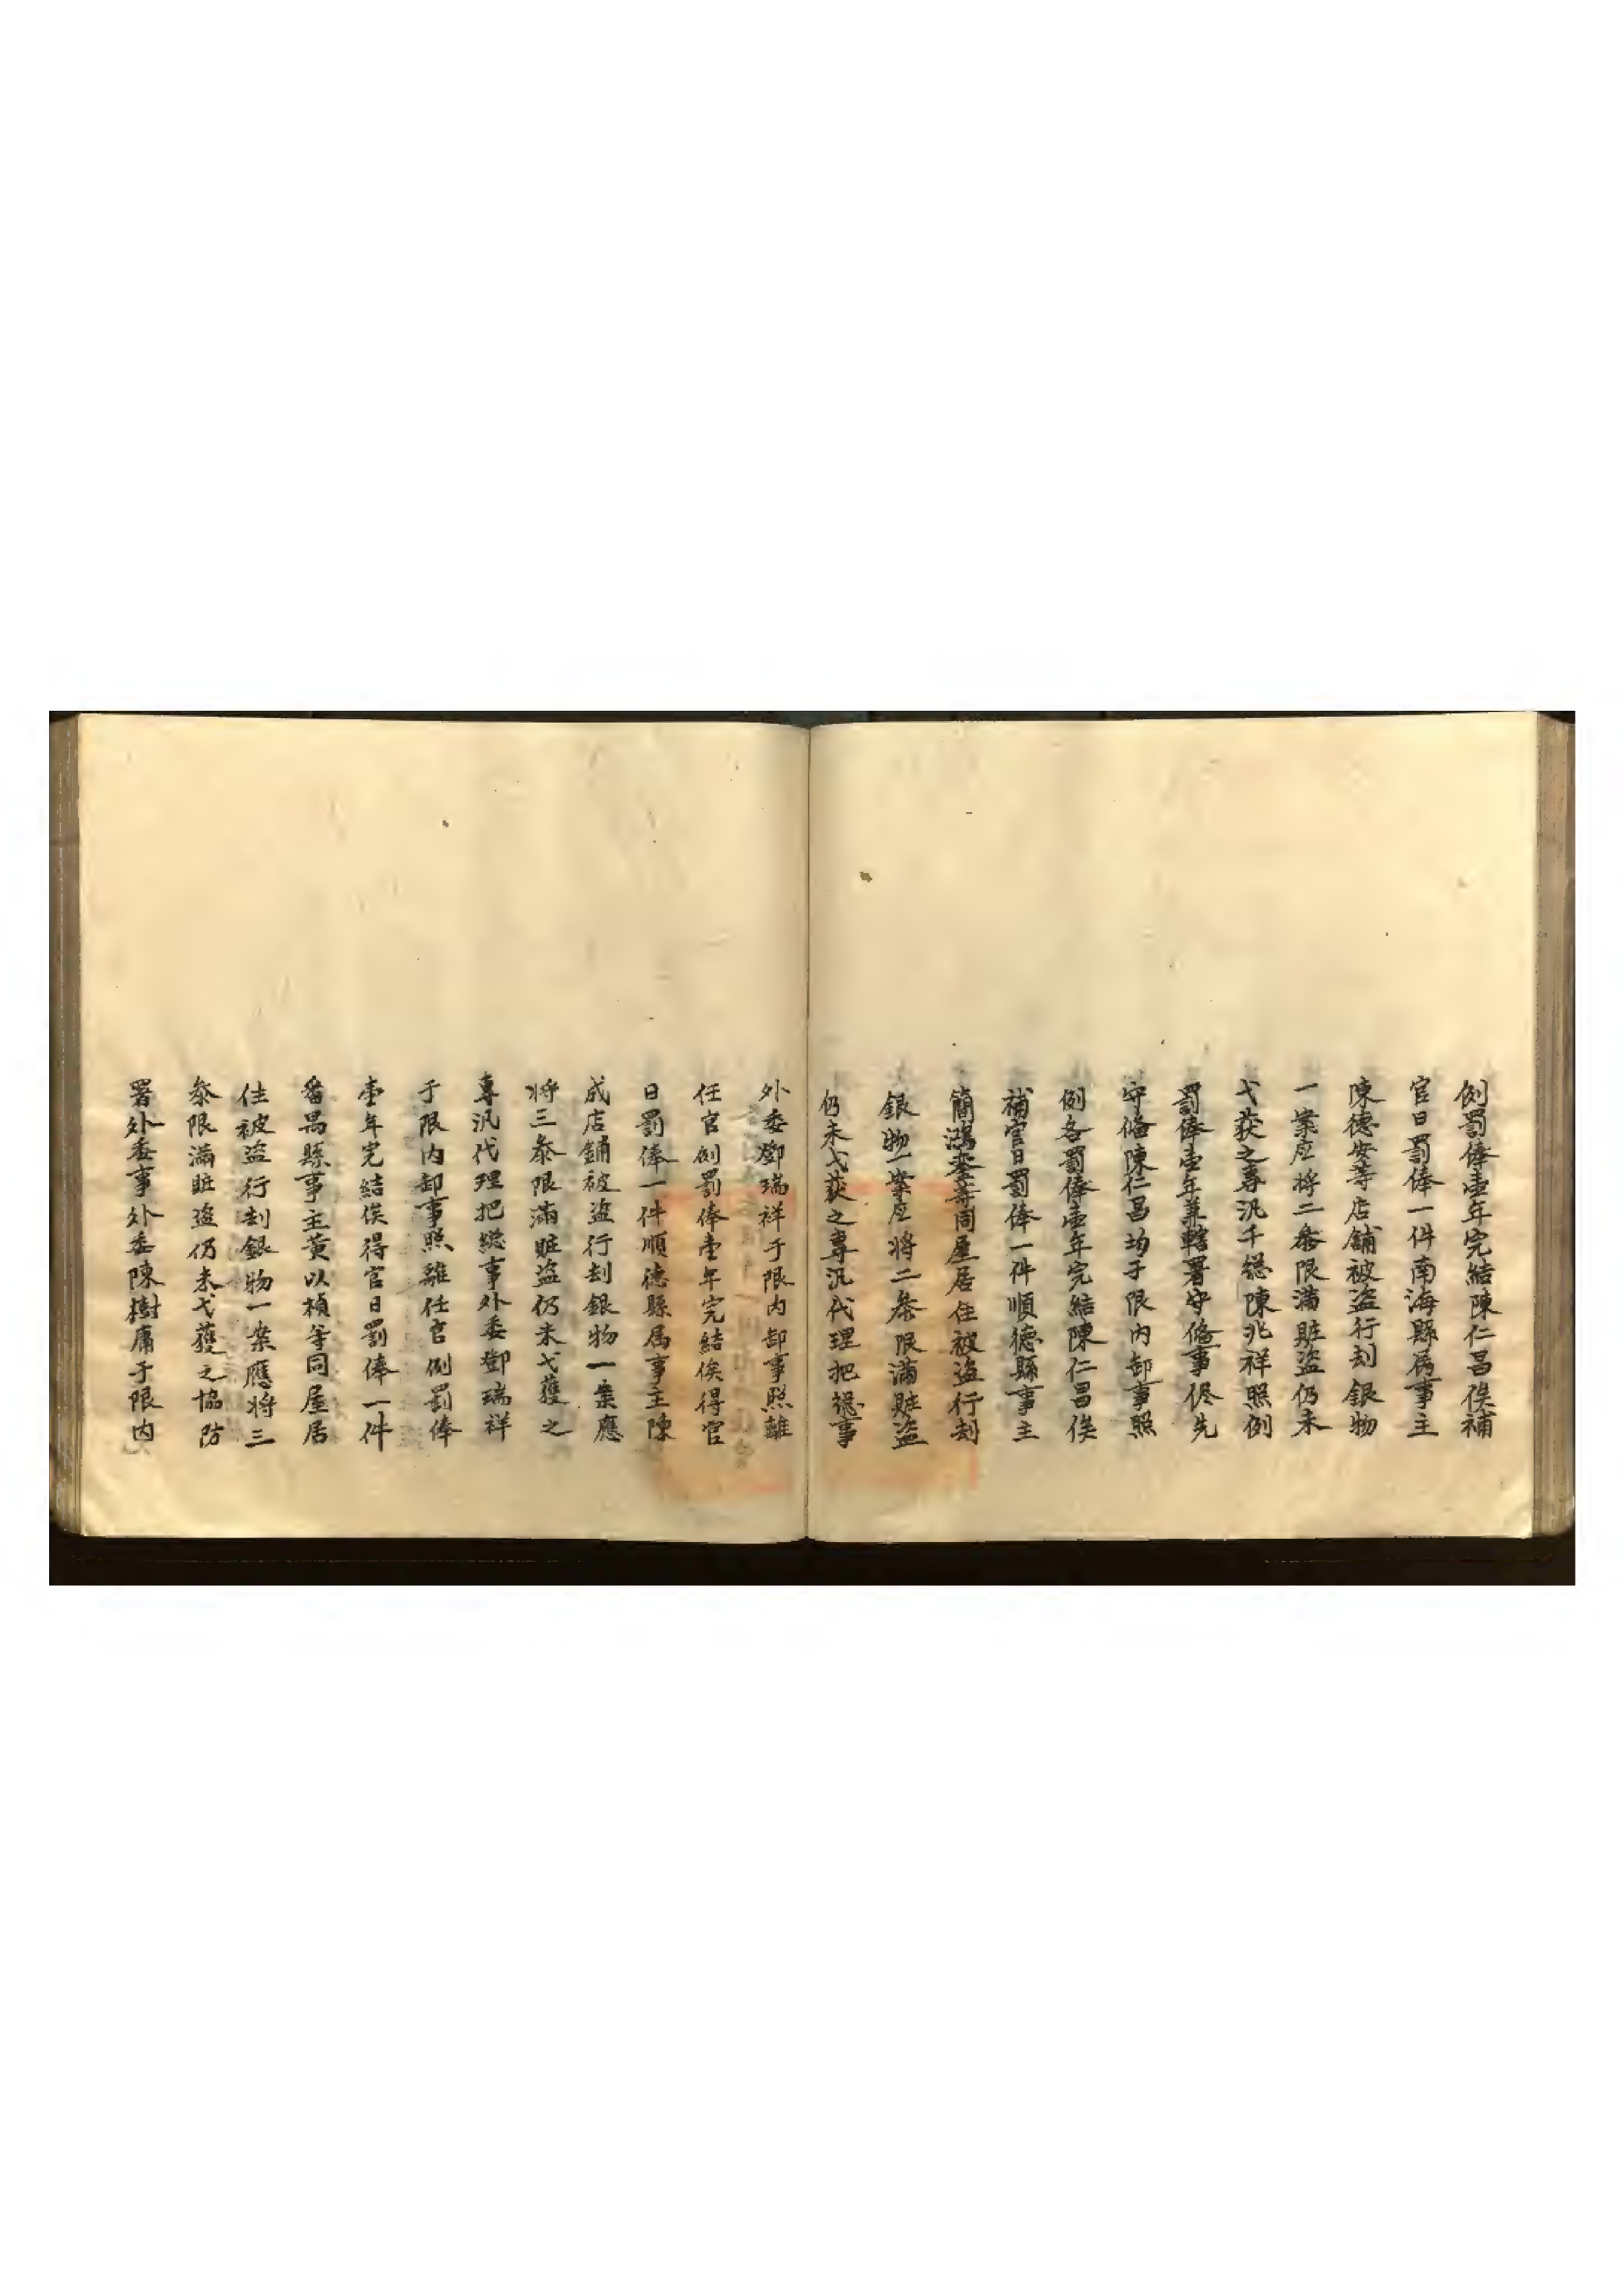 例罰俸壹年完結陳仁昌俟補
官日罰俸一件南海縣属事主
陳德安等店舖被盗行刦銀物
一案应将二叅限滿賍盗仍未
弋获之專汛千總陳兆祥照例
罰俸壹年兼轄署守俻事侭先
守俻陳仁昌均于限内卸事照
例各罰俸壹年完結陳仁昌俟
補官日罰俸一件順德縣事主
簡鴻等同屋居住被盗行刦
銀物一案应将二叅限滿賍盗
仍未弋获之專汛代理把總事
外委鄧瑞祥于限内卸事照離
任官例罰俸壹年完結俟得官
日罰俸一件順德縣属事主陳
成店鋪被盗行刦銀物一案應
将三叅限滿賍盗仍未弋獲之
專汛代理把總事外委鄧瑞祥
于限内卸事照離任官例罰俸
壹年完結俟得官日罰俸一件
番禺縣事主黄以楨等同屋居
住被盗行刦銀物一案應将三
叅限滿賍盗仍未弋獲之協防
署外委事外委陳樹庸于限内